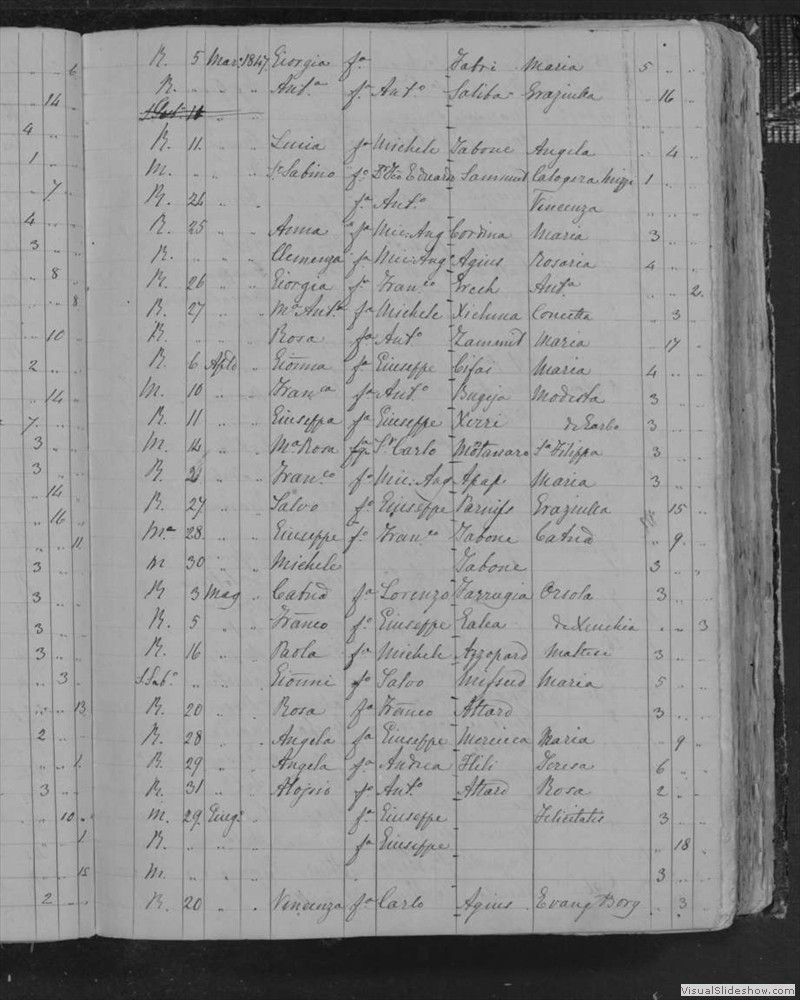 6 R. 5 Mar: 1847 Giorgia fa Fabri Maria 5 " "
R. " " " Anta. fa Anto. Saliba Graziulla " 16 "
14
R. 11. " " Lucia fa Michele Tabone Angela " 4 "
4
1 M. " " Sr. Sabino fo Eduardo Sammut Calogera 1 " "
7 R. 24 " " fa Anto. Vincenza " " "
4 R. 25 " " Anna fa Mic: Ang Cordina Maria 3 " "
3 R. " " " Clemenza fa Mic: Ang Agius Rosaria 4 " "
8 R. 26 " " Giorgia fa Franco Grech Anta. " " 2
8 R. 27 " " Ma Anta fa Michele Xicluna Concetta " 3 "
10 R. " " " Rosa fa Anto. Zammit Maria " 17 "
2 R. 6 Aple " Gionna fa Giuseppe Cifai Maria 4 " "
14 M. 10 " " Franca fa Anto. Bugeja Modesta 3 " "
7. R. 11 " " Giuseppa fa Giuseppe Xirri 3 " "
3 M. 14 " " Ma Rosa fa Sr Carlo Sa Filippa 3 " "
3 R. 21 " " Franco fo Mic: Ang Apap Maria 3 " "
14 R. 27 " " Salvo fo Giuseppe Parniss Graziulla " 15 "
16
11 Ma 28 " " Giuseppe fo Franco Tabone Catnā " 9 "
3 M 30 " " Michele Tabone 3 " "
3 R 3 Mag " Catnā fa Lorenzo Farrugia Orsola 3 " "
3 R. 5 " " Franco fo Giuseppe Galea " " 3
3 R. 16 " " Paola fa Michele Azzopard 3 " "
3 " " " Gionni fo Salvo Mifsud Maria 5 " "
13 R. 20 " " Rosa fa Franco Attard 3 " "
2 R. 28 " " Angela fa Giuseppe Mercieca Maria " 9 "
1 R. 29 " " Angela fa Andrea Flili Teresa 6 " "
3 R. 31 " " Aloysio fo Anto. Attard Rosa 2 " "
10 M. 29 Giug: " fa Giuseppe 3 " "
1 R. " " " fa Giuseppe " 18 "
15 M. " " " 3 " "
2 R. 20 " " Vincenza fa Carlo Agius Evang Borg " 3 "
VisualSlideshow.com